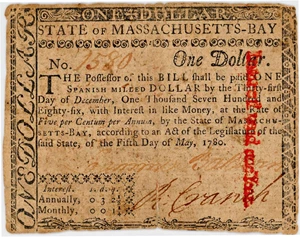 ONE DOLLAR
STATE OF MASSACHUSETTS-BAY
No. 1580 One Dollar.
THE Possessor of this BILL shall be paid ONE
SPANISH MILLED DOLLAR by the Thirty-first
Day of December, One Thousand Seven Hundred and
Eighty-six, with Interest in like Money, at the Rate of
Five per Centum per Annum, by the State of MASSACHU-
SETTS-BAY, according to an Act of the Legislature of the
said State, of the Fifth Day of May, 1780.
Interest. s. d. q.
Annually, 0 3 2
Monthly, 0 0 1
R. Cranch
ONE DOLLAR